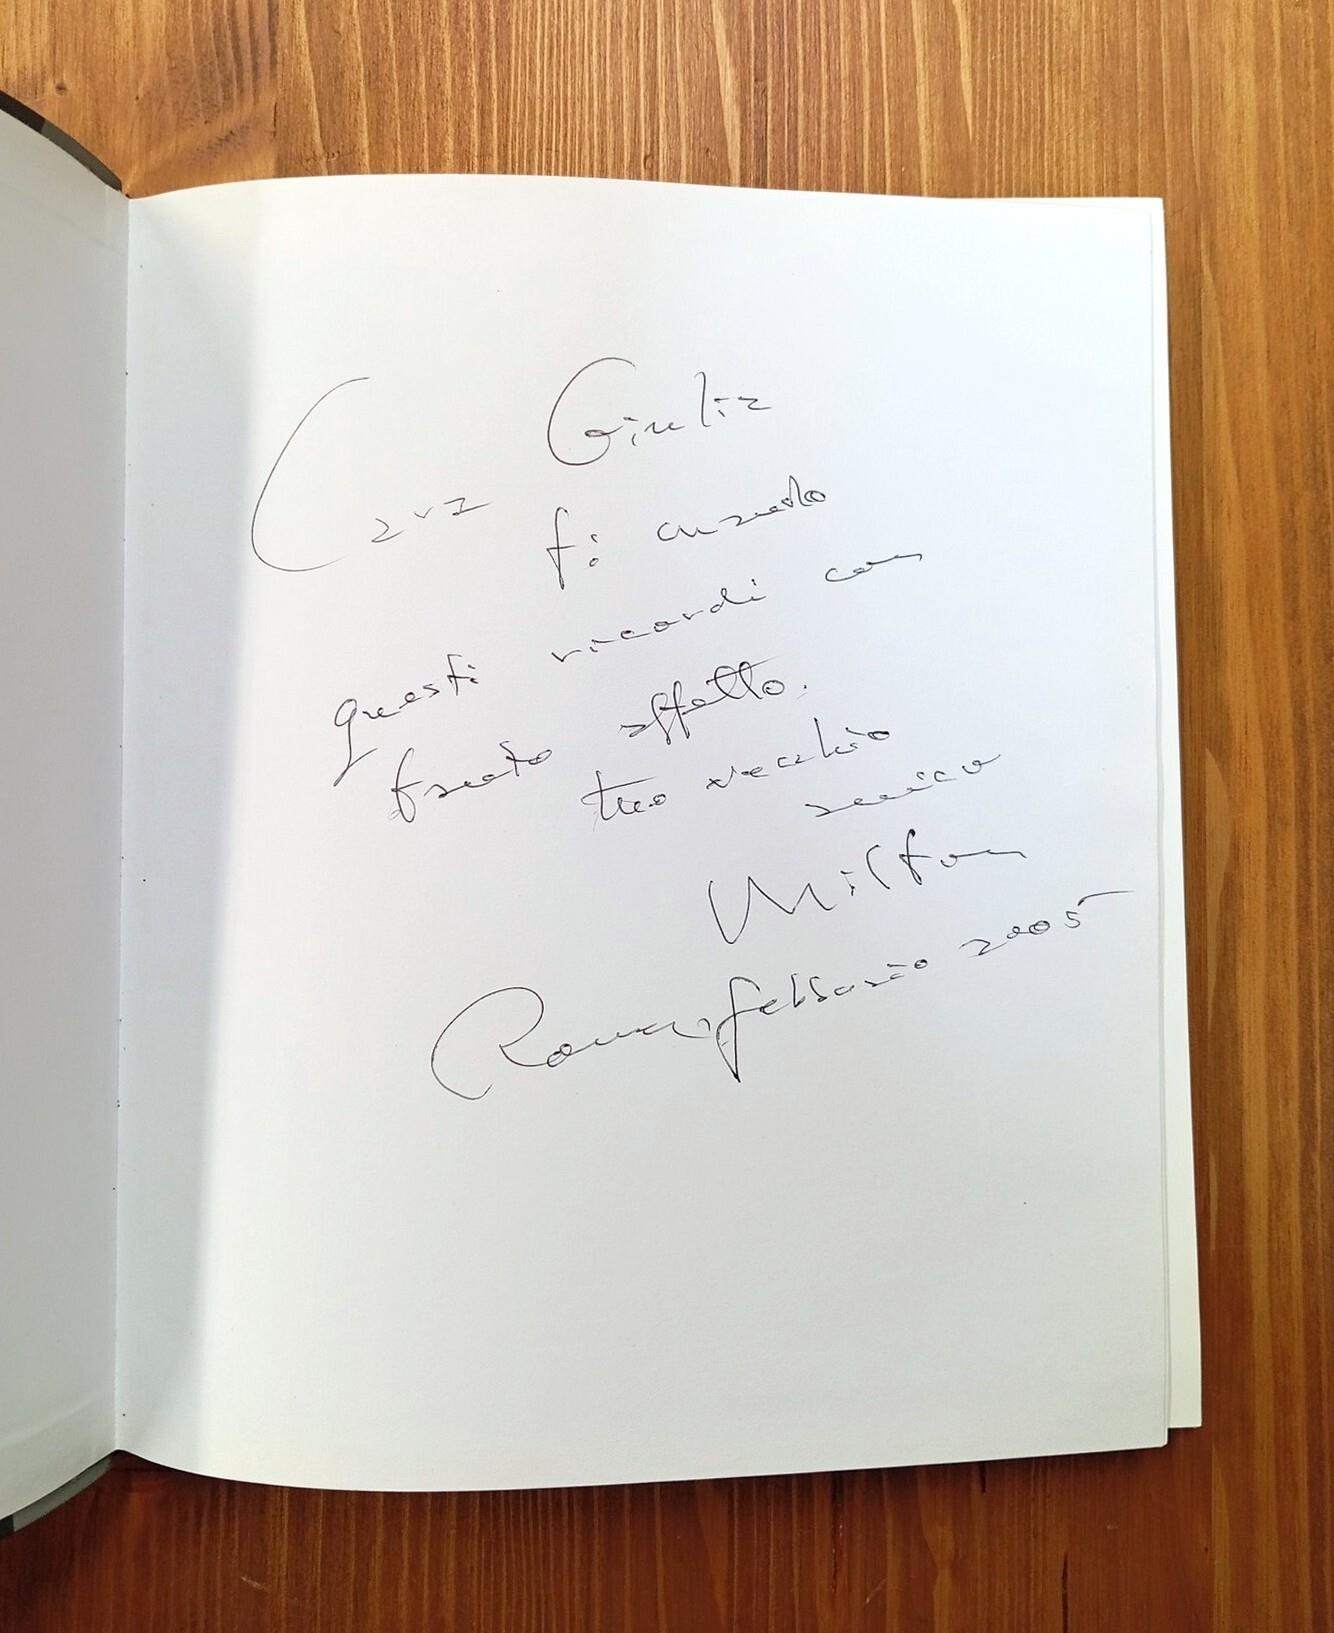 Cara Giulia
ti mando
questi ricordi con
tanto affetto.
tuo vecchio
amico
Milton
Roma, febbraio 2005